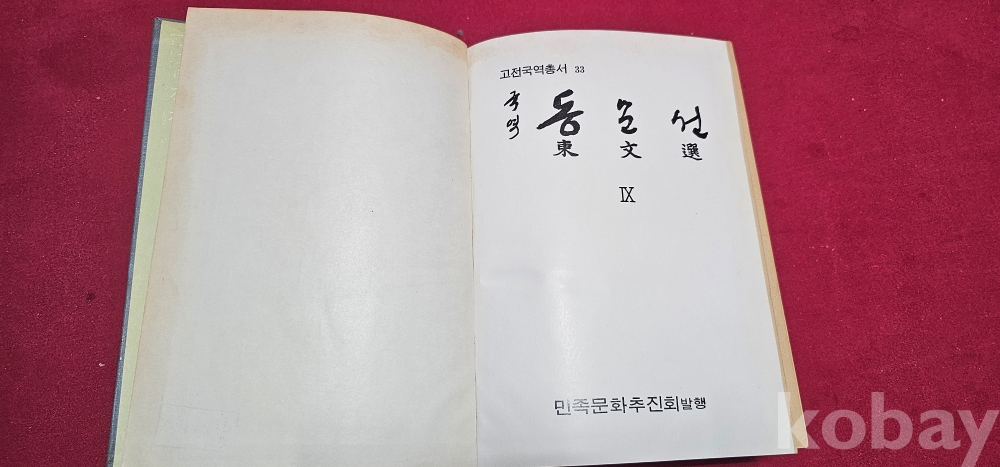 고전국역총서 33
국역 동문선
東文選
Ⅸ
민족문화추진회발행
kobay